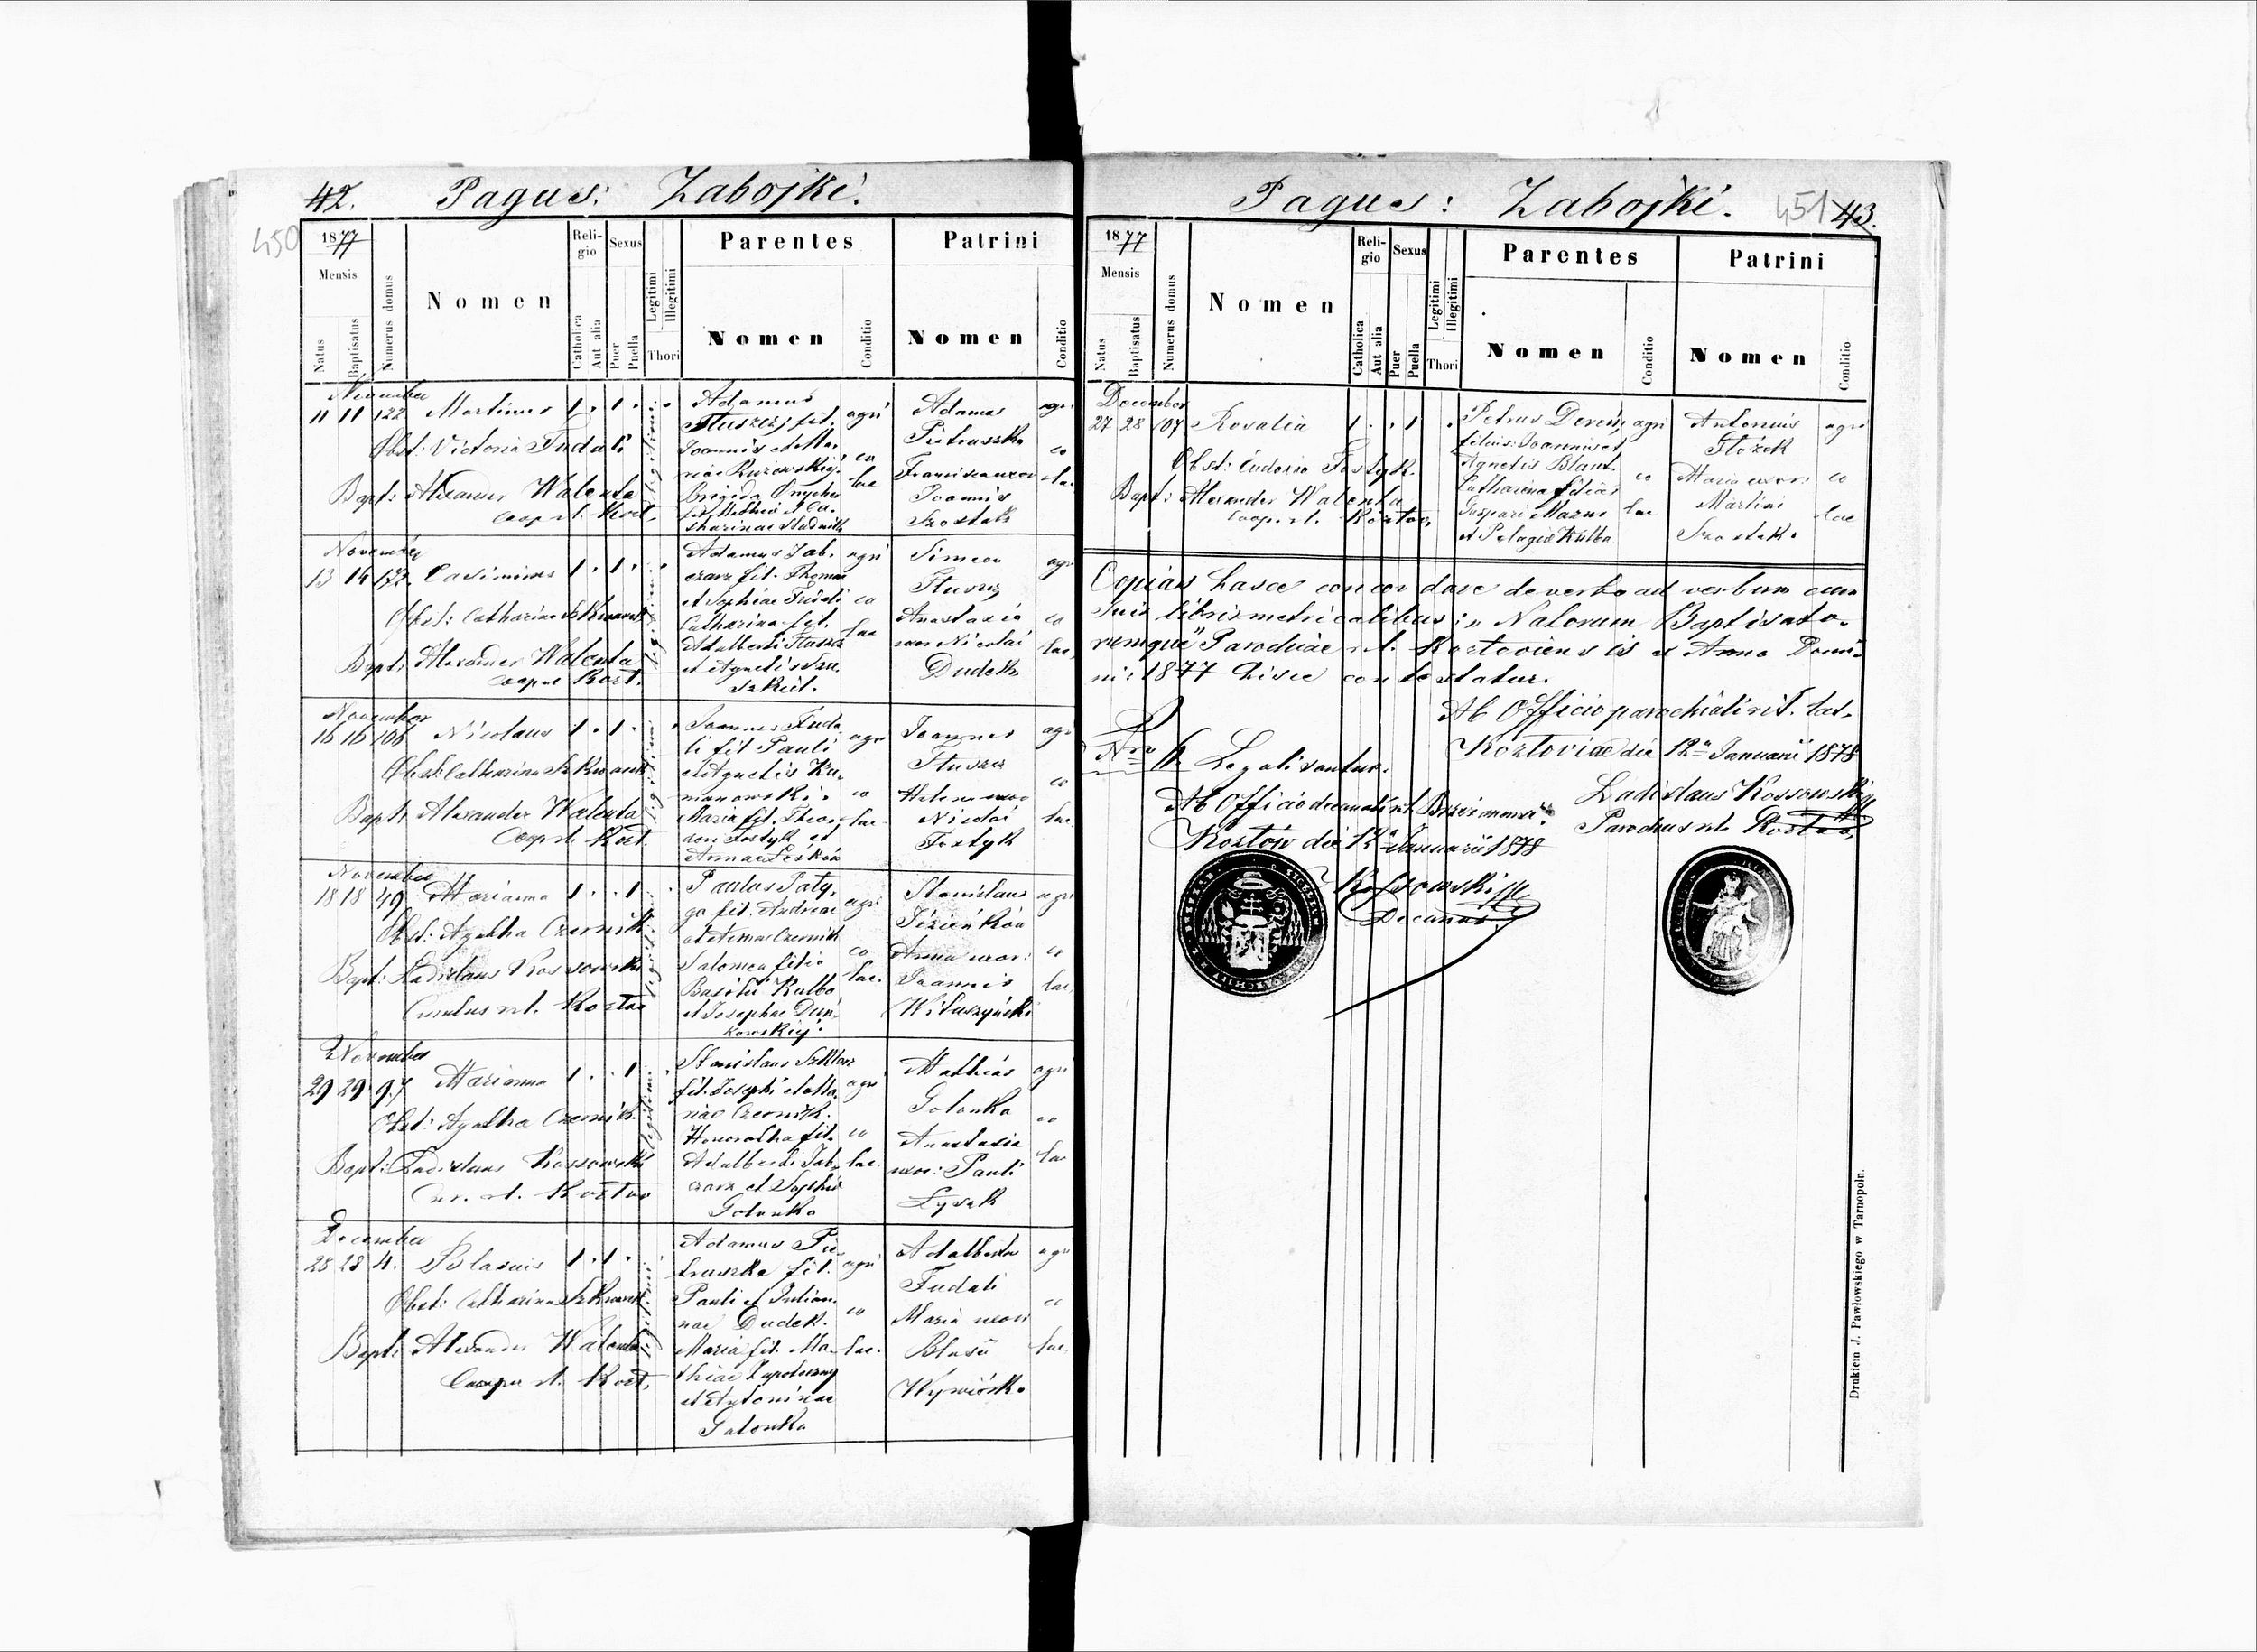 42. Pagus: Zabojki.
450
1877
Mensis
Natus
Baptisatus
Numerus domus
Nomen
Religio
Catholica
Aut alia
Sexus
Puer
Puella
Legitimi
Illegitimi
Thori
Parentes
Nomen
Conditio
Patrini
Nomen
Conditio
November
11 11 122 Martinus 1 . 1 .
Obst: Victoria Fudali
Bapt: Alexander Walenta
Coop. rl. Kozł.
Adamus
Tłuszcz fil.
Joannis et Ma-
riae
Brigida
fil. Mathei et Ca-
tharinae Sladnik
agri
co
lae
Adamus
Pietruszka
Francisca uxor
Joannis
Szostak
agri
co
lae
November
13 14 172. Casimirus 1 . 1 .
Obst: Catharina Szkwarek
Bapt: Alexander Walenta
Coop rl Kozł.
Adamus Jab-
czarz fil. Thomae
et Sophiae Fudali
Catharina fil.
Adalberti Tłuszcz
et Agnetis
agri
co
lae
Simeon
Tłuszcz
Anastasia
uxor Nicolai
Dudek
agri
co
lae
November
16 16 106 Nicolaus 1 . 1 .
Obst: Catharina Szkwarek
Bapt: Alexander Walenta
Coop rl. Kozł.
Joannes Fuda-
li fil Pauli
et Agnetis Ku-
manowski.
Maria fil. Theo-
dori Fostyk et
Annae
agri
co
lae
Joannes
Tłuszcz
Helena uxor
Nicolai
Fostyk
agri
co
lae
November
18 18 49 Marianna 1 . . 1
Obst: Agatha Czernik
Bapt: Ladislaus Kossowski
Curatus rl. Kozłov
Paulus Paty-
ga fil. Andreae
et Annae Czernik
Salomea filia
Basilii Kulba
et Josephae Dun-
kowskiej.
agri
co
lae.
Stanislaus
Anna uxor:
Joannis
Wituszyński
agri
co
lae
November
29 29 97 Marianna 1 . . 1
Obst: Agatha Czernik.
Bapt: Ladislaus Kossowski
Cur. rl. Kozłov
Stanislaus Szklarz
fil. Josephi et Ma-
riae Czernik.
Honoratha fil.
Adalberti Jab-
czarz et Sophiae
Gołonka
agri
co
lae.
Mathias
Gołonka
Anastasia
uxor: Pauli
Łysak
agri
co
lae
December
28 28 4. Blasius 1 . 1 .
Obst: Catharina Szkwarek
Bapt: Alexander Walenta
Cooper rl. Kozł.
Adamus Pie-
truszka fil.
Pauli et Julian-
nae Dudek.
Maria fil. Ma-
thiae
et Antoninae
Gołonka
agri
co
lae.
Adalbertus
Fudali
Maria uxor
Blasii
agri
co
lae.
Pagus: Zabojki. 451 43.
1877
Mensis
Natus
Baptisatus
Numerus domus
Nomen
Religio
Catholica
Aut alia
Sexus
Puer
Puella
Legitimi
Illegitimi
Thori
Parentes
Nomen
Conditio
Patrini
Nomen
Conditio
December
27 28 107 Rosalia 1 . . 1 .
Obst: Eudoxia Fostyk.
Bapt: Alexander Walenta
Coop. rl. Kozłov,
Petrus Dereń,
filius Joannis et
Agnetis Blaut.
Catharina filia
Gaspari Mazur
et Pelagia Kulba
agri
co
lae
Antonius
Tłózek
Maria uxor:
Martini
Szostak.
agri
co
lae
Copias hasce concordare de verbo ad verbum cum
suis libris metricalibus: „Natorum Baptisato-
rumque" Parochiae r.l. Kozłoviensis ex Anno Domi-
ni: 1877 hisce contestatur.
Ab Officio parochiali rit. lat.
Kozłoviae die 12ª Januarii 1878
Ladislaus Kossowski
Parochus rl. Kozłov,
Nro 6 Legalisantur.
Ab Officio decanali rl. Brzezanensi
Kozłów die 12ª Januarii 1878
Kossowski
Decanus.
Drukiem J. Pawłowskiego w Tarnopoln.